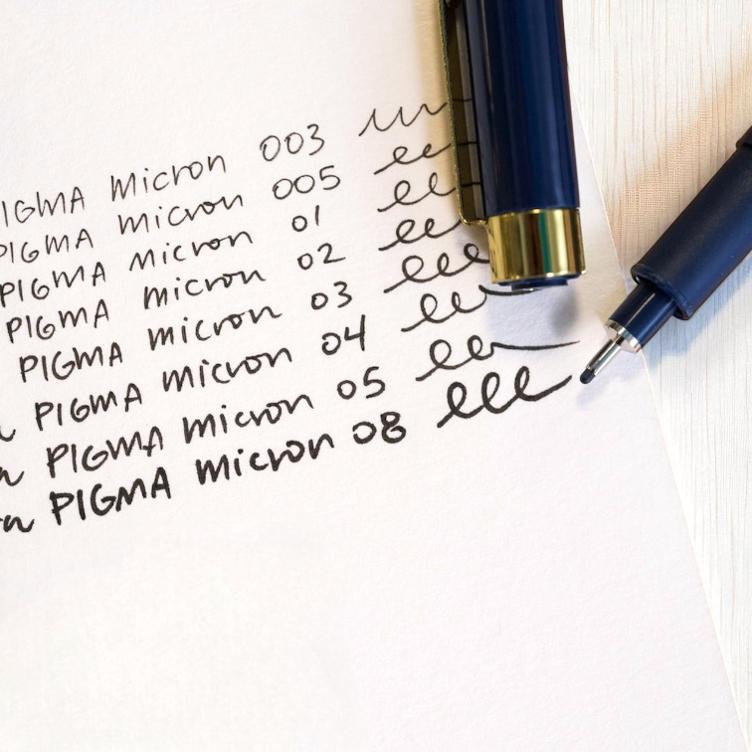 IGMA Micron 003
PIGMA micron 005
PIGMA micron 01
PIGMA micron 02
PIGMA micron 03
PIGMA micron 04
PIGMA micron 05
PIGMA micron 08